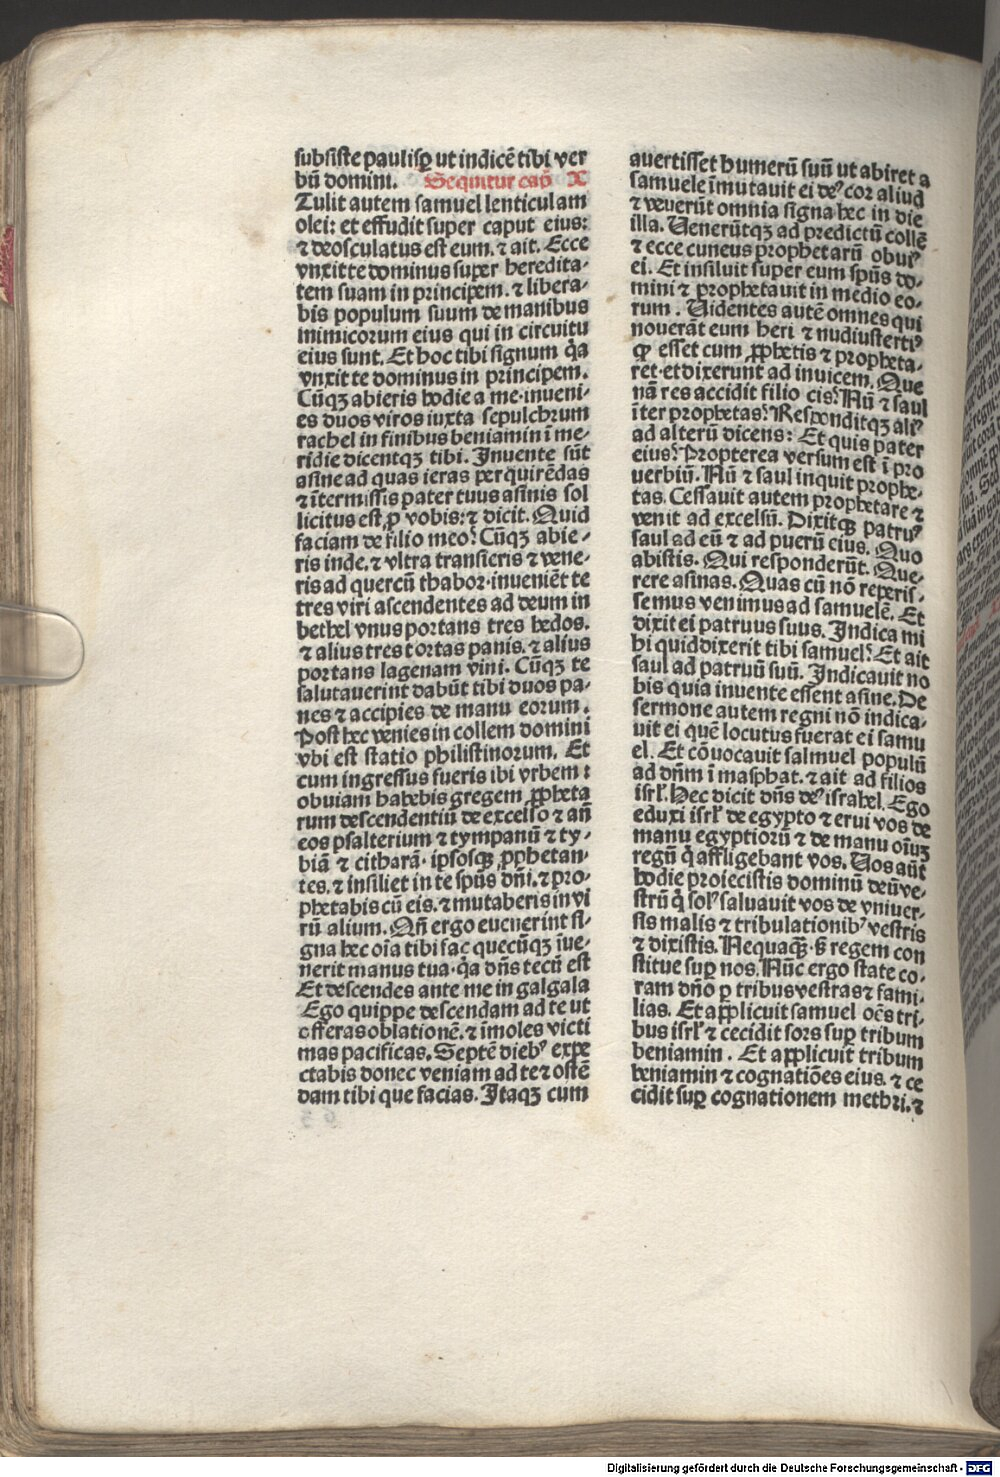 subsiste paulisꝑ ut indicē tibi ver
bū domini. Sequitur capͫ X
Tulit autem samuel lenticulam
olei: et effudit super caput eius:
⁊ deosculatus est eum. ⁊ ait. Ecce
vnxit te dominus super heredita-
tem suam in principem. ⁊ libera-
bis populum suum de manibus
inimicorum eius qui in circuitu
eius sunt. Et hoc tibi signum qͣa
vnxit te dominus in principem.
Cūqꝫ abieris hodie a me· inueni-
es duos viros iuxta sepulchrum
rachel in finibus beniamin ī me-
ridie dicentqꝫ tibi. Inuente sūt
asine ad quas ieras perquirēdas
⁊ ītermissis pater tuus asinis sol
licitus est ꝓ vobis: ⁊ dicit. Quid
faciam de filio meo? Cūqꝫ abie-
ris inde. ⁊ vltra transieris ⁊ vene-
ris ad quercū thabor· inueniēt te
tres viri ascendentes ad deum in
bethel vnus portans tres hedos.
⁊ alius tres tortas panis. ⁊ alius
portans lagenam vini. Cūqꝫ te
salutauerint dabūt tibi duos pa-
nes ⁊ accipies de manu eorum.
Post hec venies in collem domini
vbi est statio philistinorum. Et
cum ingressus fueris ibi vrbem:
obuiam habebis gregem ꝓpheta
rum descendentiū de excelso ⁊ añ
eos psalterium ⁊ tympanū ⁊ ty-
biā ⁊ citharā· ipsosqꝫ ꝓphetan-
tes. ⁊ insiliet in te spūs dñi. ⁊ pro-
phetabis cū eis. ⁊ mutaberis in vi
rū alium. Qñ ergo euenerint si-
gna hec oīa tibi fac quecūqꝫ īue-
nerit manus tua· qͣa dñs tecū est
Et descendes ante me in galgala
Ego quippe descendam ad te ut
offeras oblationē. ⁊ īmoles victi
mas pacificas. Septē diebꝰ expe
ctabis donec veniam ad te ⁊ ostē
dam tibi que facias. Itaqꝫ cum
auertisset humerū suū ut abiret a
samuele īmutauit ei deꝰ cor aliud
⁊ venerūt omnia signa hec in die
illa. Uenerūtqꝫ ad predictū collē
⁊ ecce cuneus prophetarū obuiꝰ
ei. Et insiluit super eum spūs do-
mini ⁊ prophetauit in medio eo-
rum. Uidentes autē omnes qui
nouerāt eum heri ⁊ nudiustertiꝰ
ꝙ esset cum ꝓphetis ⁊ propheta-
ret· et dixerunt ad inuicem. Que
nā res accidit filio cis? Nū ⁊ saul
īter prophetas? Responditqꝫ aliꝰ
ad alterū dicens: Et quis pater
eius? Propterea versum est ī pro
uerbiū. Nū ⁊ saul inquit prophe-
tas. Cessauit autem prophetare ⁊
venit ad excelsū. Dixitqꝫ patruꝰ
saul ad eū ⁊ ad puerū eius. Quo
abistis. Qui responderūt. Que-
rere asinas. Quas cū nō reperis-
semus venimus ad samuelē. Et
dixit ei patruus suus. Indica mi
hi quid dixerit tibi samuel? Et ait
saul ad patruū suū. Indicauit no
bis quia inuente essent asine. De
sermone autem regni nō indica-
uit ei quē locutus fuerat ei samu
el. Et cōuocauit salmuel populū
ad dñm ī masphat. ⁊ ait ad filios
isrl̄. Hec dicit dñs deꝰ israhel. Ego
eduxi isrl̄ de egypto ⁊ erui vos de
manu egyptiorū ⁊ de manu oīuꝫ
regū qͥ affligebant vos. Uos aūt
hodie proiecistis dominū deū ve-
strū qͥ solꝰ saluauit vos de vniuer-
sis malis ⁊ tribulationibꝰ vestris
⁊ dixistis. Nequaqꝫ· s̄ regem con
stitue suꝑ nos. Nūc ergo state co-
ram dño ꝑ tribus vestras ⁊ fami-
lias. Et applicuit samuel oēs tri-
bus isrl̄ ⁊ cecidit sors suꝑ tribum
beniamin. Et applicuit tribum
beniamin ⁊ cognatiōes eius. ⁊ ce
cidit suꝑ cognationem methri. ⁊
Digitalisierung gefördert durch die Deutsche Forschungsgemeinschaft - DFG